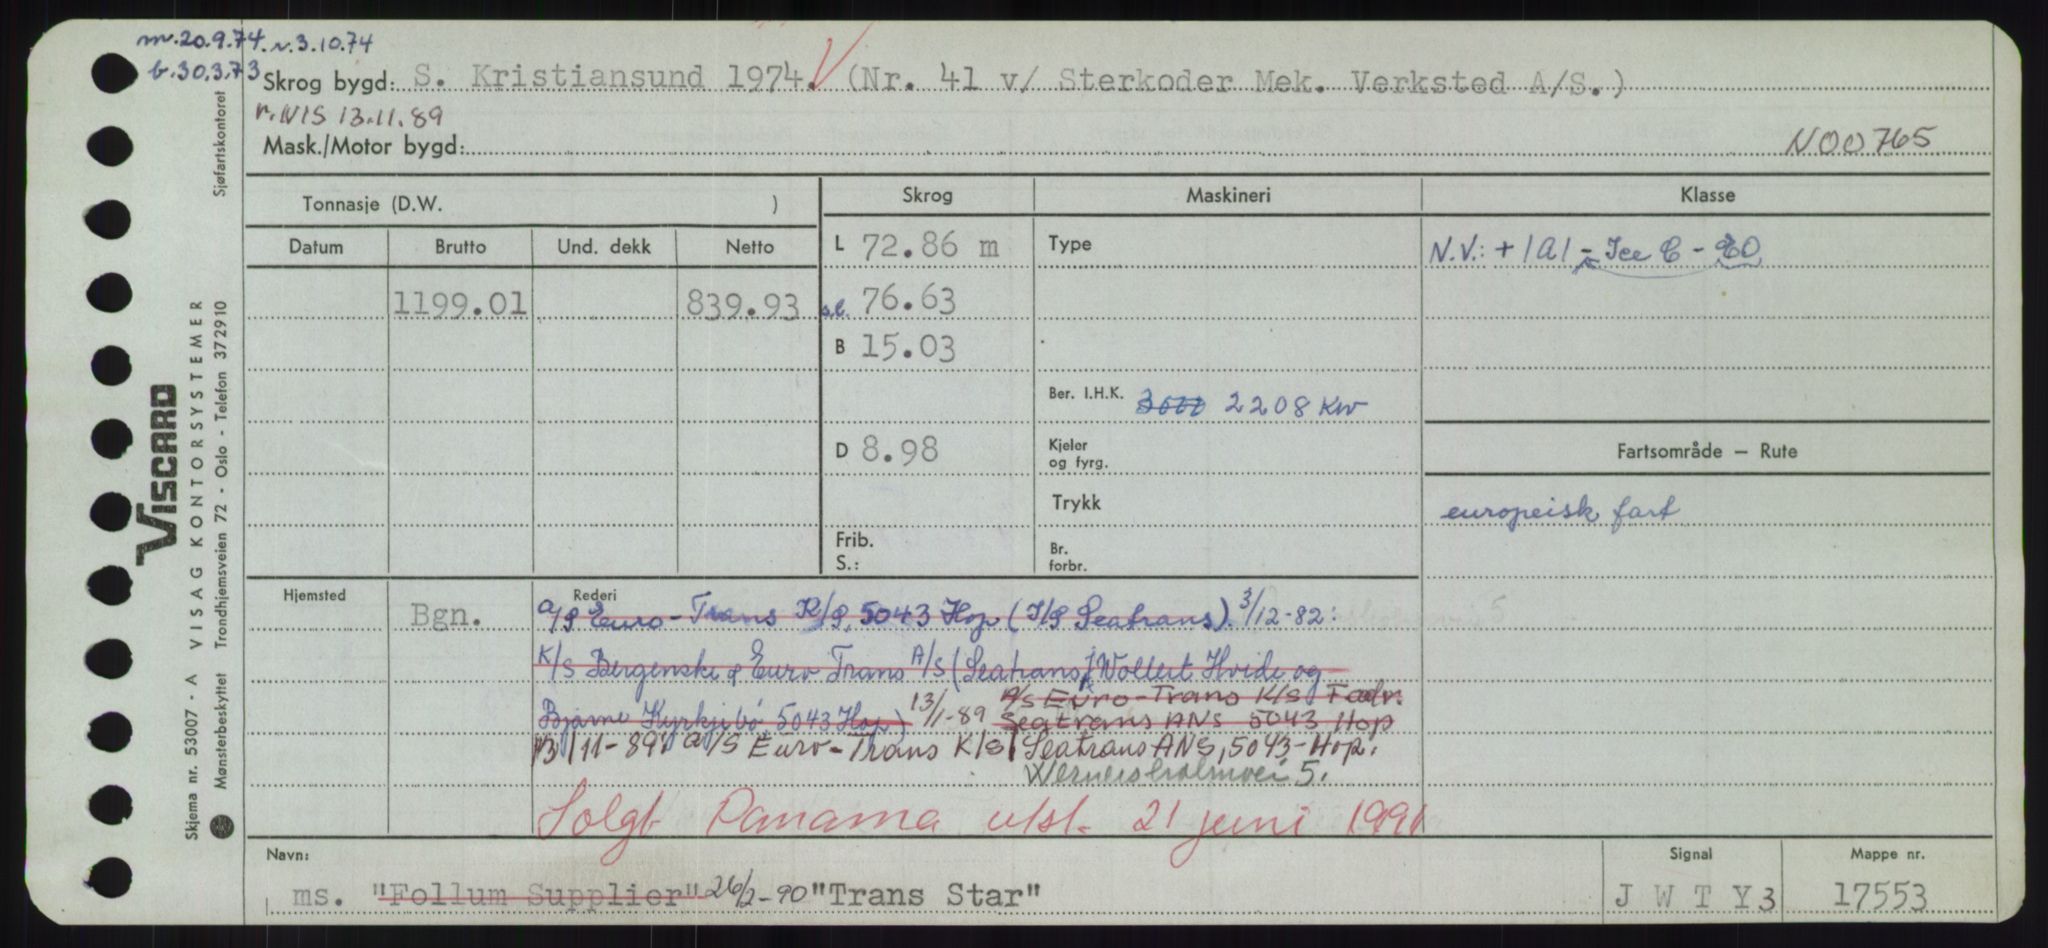 m. 20.9.74. r. 3.10.74
b. 30.3.73
Skrog bygd: S. Kristiansund 1974. (Nr. 41 v/ Sterkoder Mek. Verksted A/S.)
r. NIS 13.11.89
Mask./Motor bygd:
N00765
Tonnasje (D.W. )
Skrog
Maskineri
Klasse
Datum Brutto Und. dekk Netto
L 72.86 m
Type
N.V.: + 1A1 - Ice C - EO
1199.01 839.93
s.l. 76.63
B 15.03
Ber. I.H.K. 3000 2208 KW
D 8.98
Kjeler
og fyrg.
Fartsområde — Rute
Trykk
europeisk fart
Frib.
S.:
Br.
forbr.
Hjemsted
Rederi
Bgn.
A/S Euro-Trans K/S, 5043 Hop (I/S Seatrans). 3/12-82:
K/S Bergenske & Euro Trans A/S (Seatrans/Wollert Hvide og
Bjarne Kyrkjebø, 5043 Hop) 13/1-89 A/S Euro-Trans K/S
Seatrans ANS 5043 Hop
13/11-89: A/S Euro-Trans K/S/Seatrans ANS, 5043-Hop.
Wernersholmvei 5.
Solgt Panama utsl. 21 juni 1991
Navn:
Signal
Mappe nr.
ms. "Follum Supplier" 26/2-90 "Trans Star"
J W T Y 3
17553
VISCARD
VISAG KONTORSYSTEMER
Skjema nr. 53007 - A
Mønsterbeskyttet Trondhjemsveien 72 - Oslo - Telefon 372910
Sjøfartskontoret